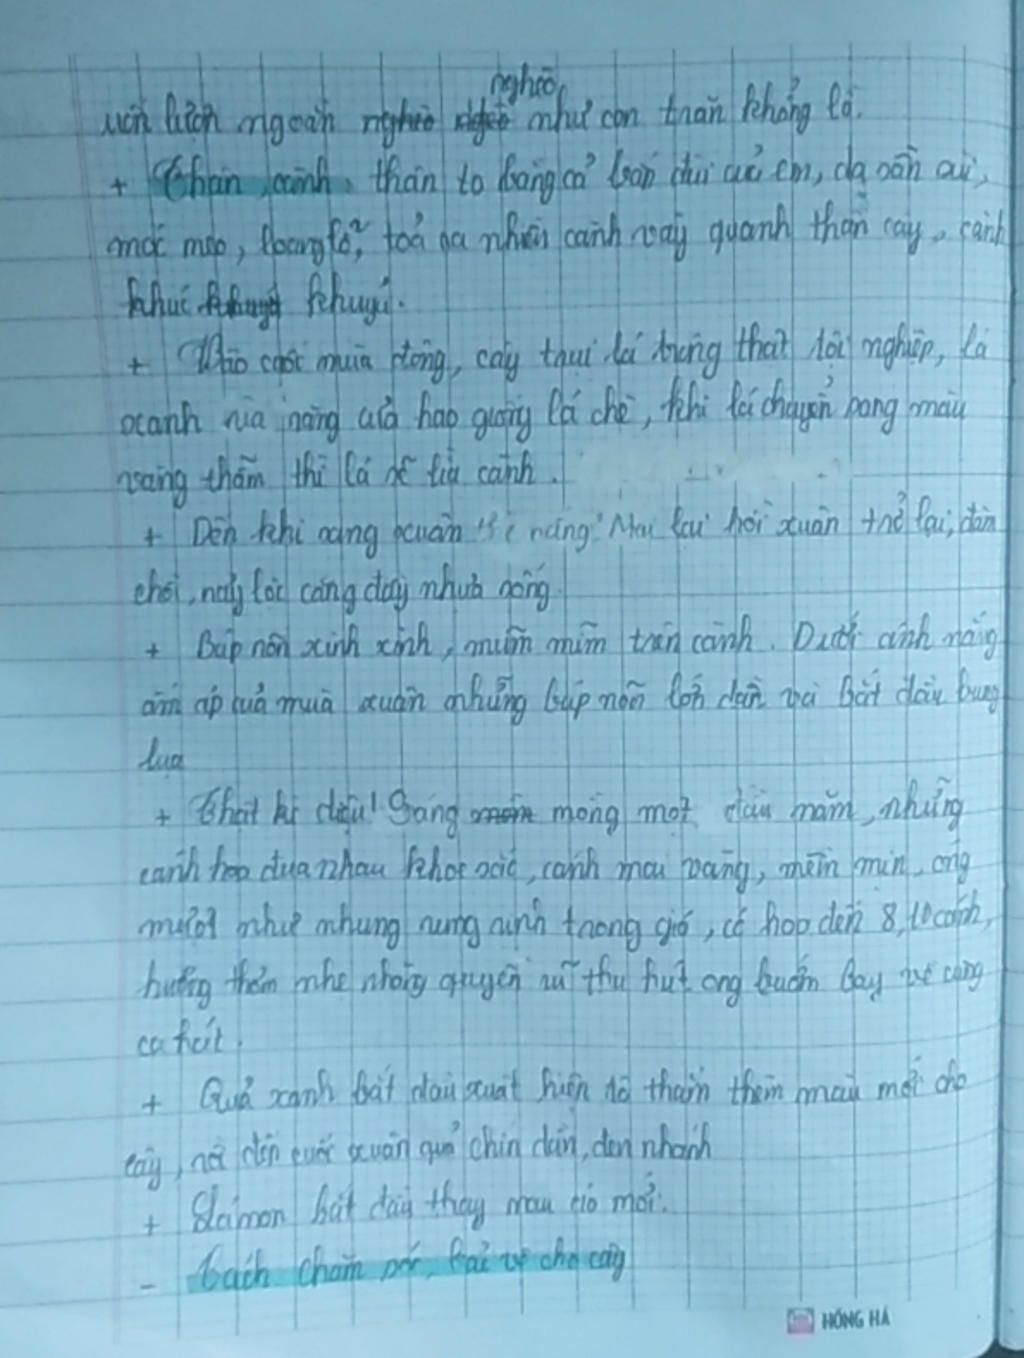 nghèo
uốn lượn ngoằn nghèo như con trăn khổng lồ.
+ Thân, cành, thân to bằng cả bàn đùi của em, da sần sùi,
mốc meo, loang lổ, toả ra nhiều cành vây quanh thân cây, cành
khúc khuỷu.
+ Vào cuối mùa đông, cây trụi lá trông thật tội nghiệp, lá
xanh vừa nặng vừa hao giống lá chè, khi lá chuyển sang màu
vàng thẫm thì lá sẽ lìa cành.
+ Đến khi sang xuân nàng Mai lại hồi xuân trở lại, đâm
chồi, nảy lộc căng đầy nhựa sống
+ Búp nõn xinh xinh, mũm mĩm trên cành. Dưới ánh nắng
ấm áp của mùa xuân những búp nõn lớn dần và bắt đầu bung
lụa
+ Thật kì diệu! Sáng mồng một đầu năm, những
cánh hoa đua nhau khoe sắc, cánh mai vàng, mềm mịn, óng
mượt như nhung rung rinh trong gió, có hoa đến 8, 10 cánh,
hương thơm nhẹ nhàng quyến rũ thu hút ong bướm bay về cùng
ca hát.
+ Quả xanh bắt đầu xuất hiện tô thắm thêm màu mới cho
cây, rồi đến cuối xuân quả chín dần, đen nhánh
+ Lá non bắt đầu thay màu áo mới.
- Cách chăm sóc, bảo vệ cho cây
HỒNG HÀ